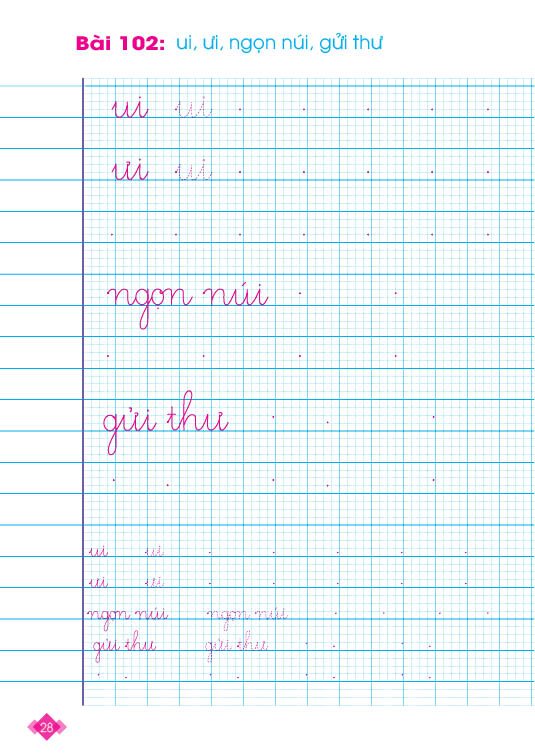 Bài 102: ui, ưi, ngọn núi, gửi thư
ui ui
ưi ui
ngọn núi
gửi thư
ui ui
ui ui
ngọn núi ngọn núi
gửi thư gửi thư
28